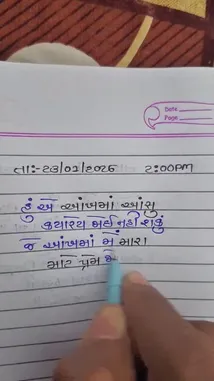 Date
Page
તા:-૨૩/૦૨/૨૦૨૬ ૨:૦૦pm
હું એ આંખમાં આંસુ
ક્યારેય જોઈ નહીં શકું
જે આંખમાં મેં મારા
માટે પ્રેમ